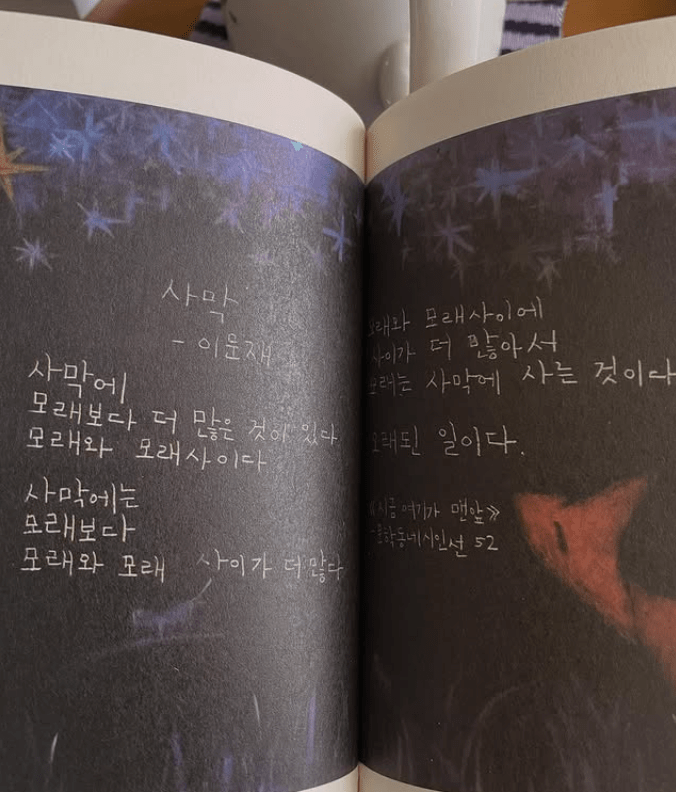 사막
- 이문재
사막에
모래보다 더 많은 것이 있다
모래와 모래사이다
사막에는
모래보다
모래와 모래 사이가 더 많다
모래와 모래사이에
사이가 더 많아서
모래는 사막에 사는 것이다
오래된 일이다.
《지금 여기가 맨앞》
- 문학동네시인선 52